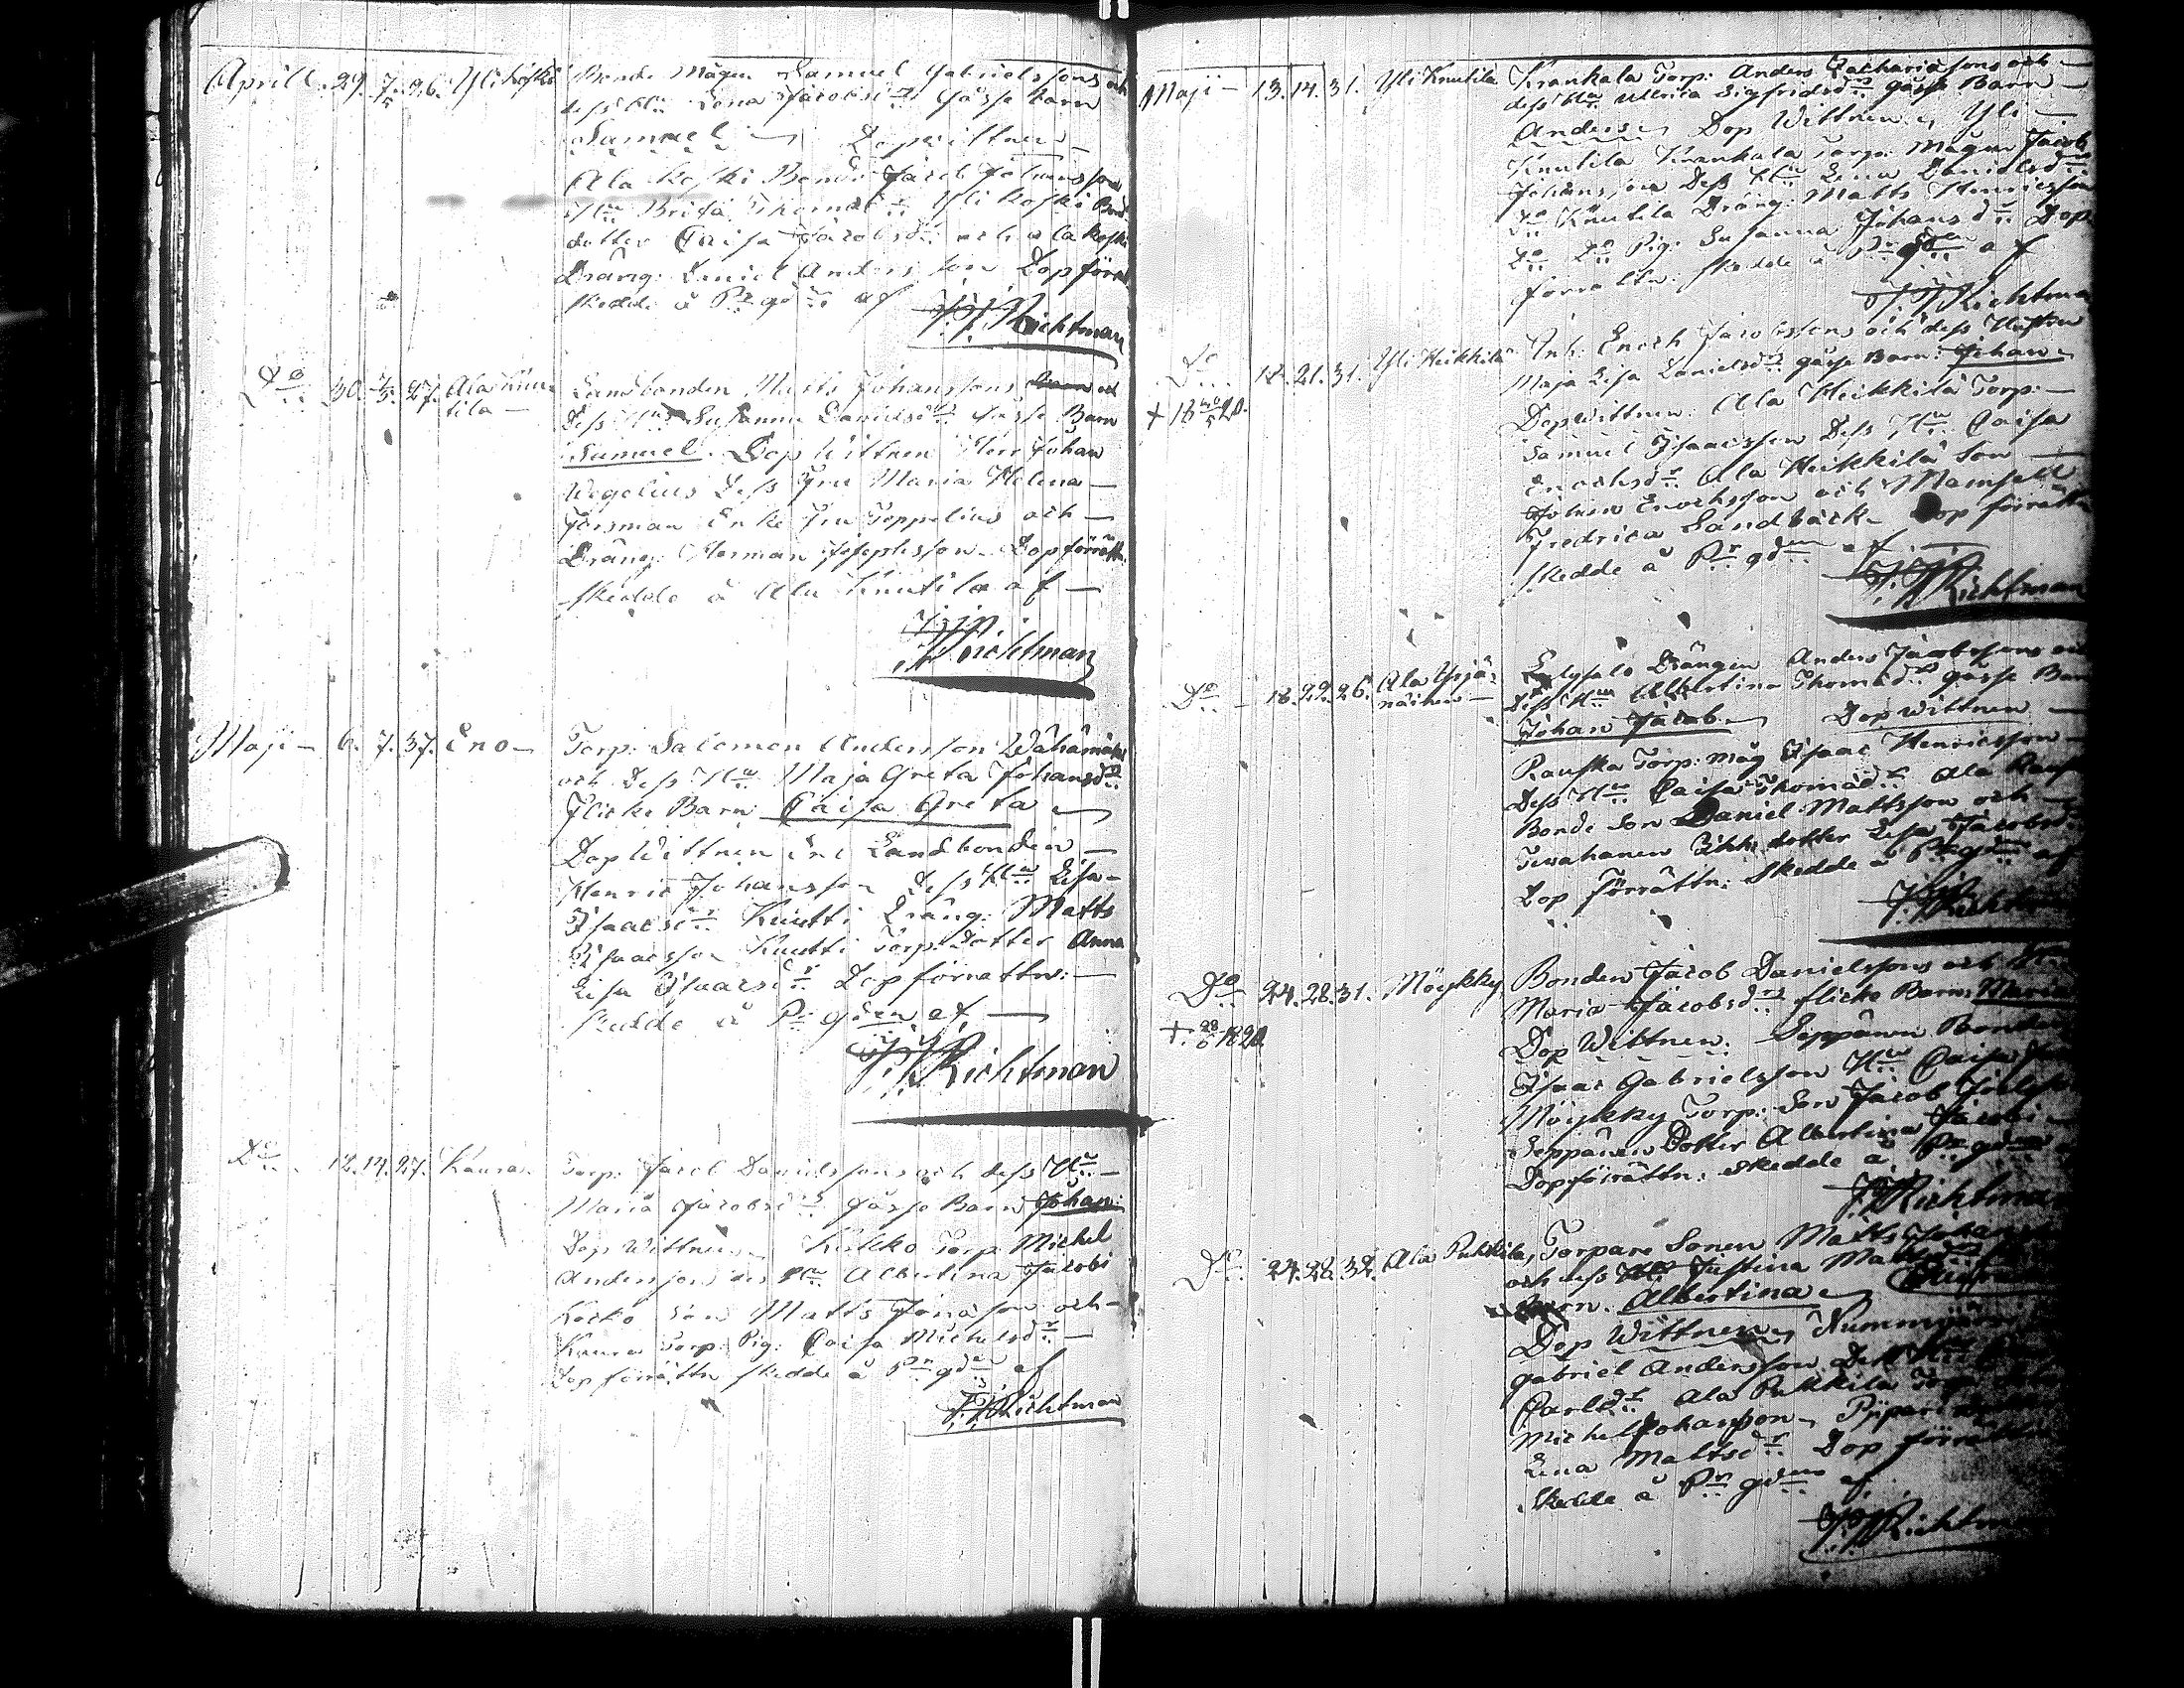 Aprill. 29. 7/5. 26. Yli Koski Bonde Mågen Samuel Gabrielssons och
dess Hu Lena Jacobsdr Gåsse Barn
Samuel Dopwittnen
Ala Koski Bonde Jacob Johansson
Hu Brita Thomædr Yli Koski Bond
dotter Caisa Jacobsdr och ala Koski
Dräng: Daniel Andersson Dop förrä
skedde å Pr gdn af
J. Richtman
Do 30. 7/5. 27. Ala Knu-
tila
Landbonden Matts Johanssons och
Dess Hu Susanna Danielsdr Gåsse Barn
Samuel. Dop Wittnen Herr Johan
Wegelius Dess Fru Maria Helena
Forsman Enke Fru Toppelius och
Dräng: Herman Josephsson Dop förrättn:
skedde å Ala Knutila af
Richtman
Maji 6. 7. 37. Eno Torp: Salomon Andersson Wähämäki
och Dess Hu Maja Greta Johansdr
Flicke Barn Caisa Greta
Dop Wittnen Eno Landbonden
Henric Johansson Dess Hu Lisa
Isaacsdr Knutti Dräng: Matts
Isaacsson Knutti Torp: Dotter Anna
Lisa Isaacsdr Dop förrattn:
skedde å Pr gden af
Richtman
Do 12. 14. 27. Kaura Torp: Jacob Danielssons och dess Hu
Maria Jacobsdr Gåsse Barn Johan
Dop Wittnen Kukko Torp: Michel
Andersson des Hu Albertina Jacobs
Kocko Son Matts Jonasson och
Kaura Torp: Pig: Caisa Michelsdr
Dop förrättn skedde å Pr gden af
Richtman
Maji 13. 14. 31. Yli Knutila Krankala Torp: Anders Zachariæsons och
dess Hu Ullrica Sigfridsdr gåsse Barn
Anders Dop Wittnen Yli
Knutila Krankala Torp: Mågen Jacob
Johansson Dess Hu Lena Danielsdr
Do Knutila Dräng: Matts Henricsson
Do Do Pig: Susanna Johansdr Dop
förrättn: skedde å Pr gden af
Richtman
Do 18. 21. 31. Yli Heikkilä Inh: Enoch Jacobssons och dess Hustru
+ 18 20. Maja Lisa Danielsdr gåsse Barn: Johan
Dopwittnen: Ala Heikkilä Torp:
Samuel Isaacsson Dess Hu Caisa
Enochsdr Ala Heikkilä Son
Johan Enochsson och Mamsell
Fredrica Sandbäck Dop förrättn
skedde å Pr gden af
Richtman
Do 18. 22. 26. Ala Yrjä-
näinen
Drängen Anders Jacobssons och
Dess Hu Albertina Thomædr gåsse Barn
Johan Jacob Dop wittnen
Rauska Torp: måg Isaac Henricsson
Dess Hu Caisa Thomædr Ala Rausk
Bonde Son Daniel Mattsson och
dotter Lisa Jacobsdr
Dop förrättn: skedde å Pr gden af
Richtman
Do 24. 28. 31. Möykky Bonden Jacob Danielssons och Hu
+ 28/6 1820 Maria Jacobsdr flicke Barn: Maria
Dop Wittnen. Seppänen Bonden
Isaac Gabrielsson Hu Caisa
Möykky Torp: Son Jacob
Seppänen Dotter Albertina Jacobs
Dop förrättn: skedde å Pr gden
Richtman
Do 24. 28. 32. Ala Pukkila, Torpare Sonen Matts Johans
och dess Hu Justina Matts
Barn. Albertina
Dop Wittnen Nummijär
Gabriel Andersson Dess Hu
Carlsdr Ala Pukkila Torp:
Michel Johansson Pipare
Lena Mattsdr Dop förrättn
Skedde å Pr gden af
Richtman